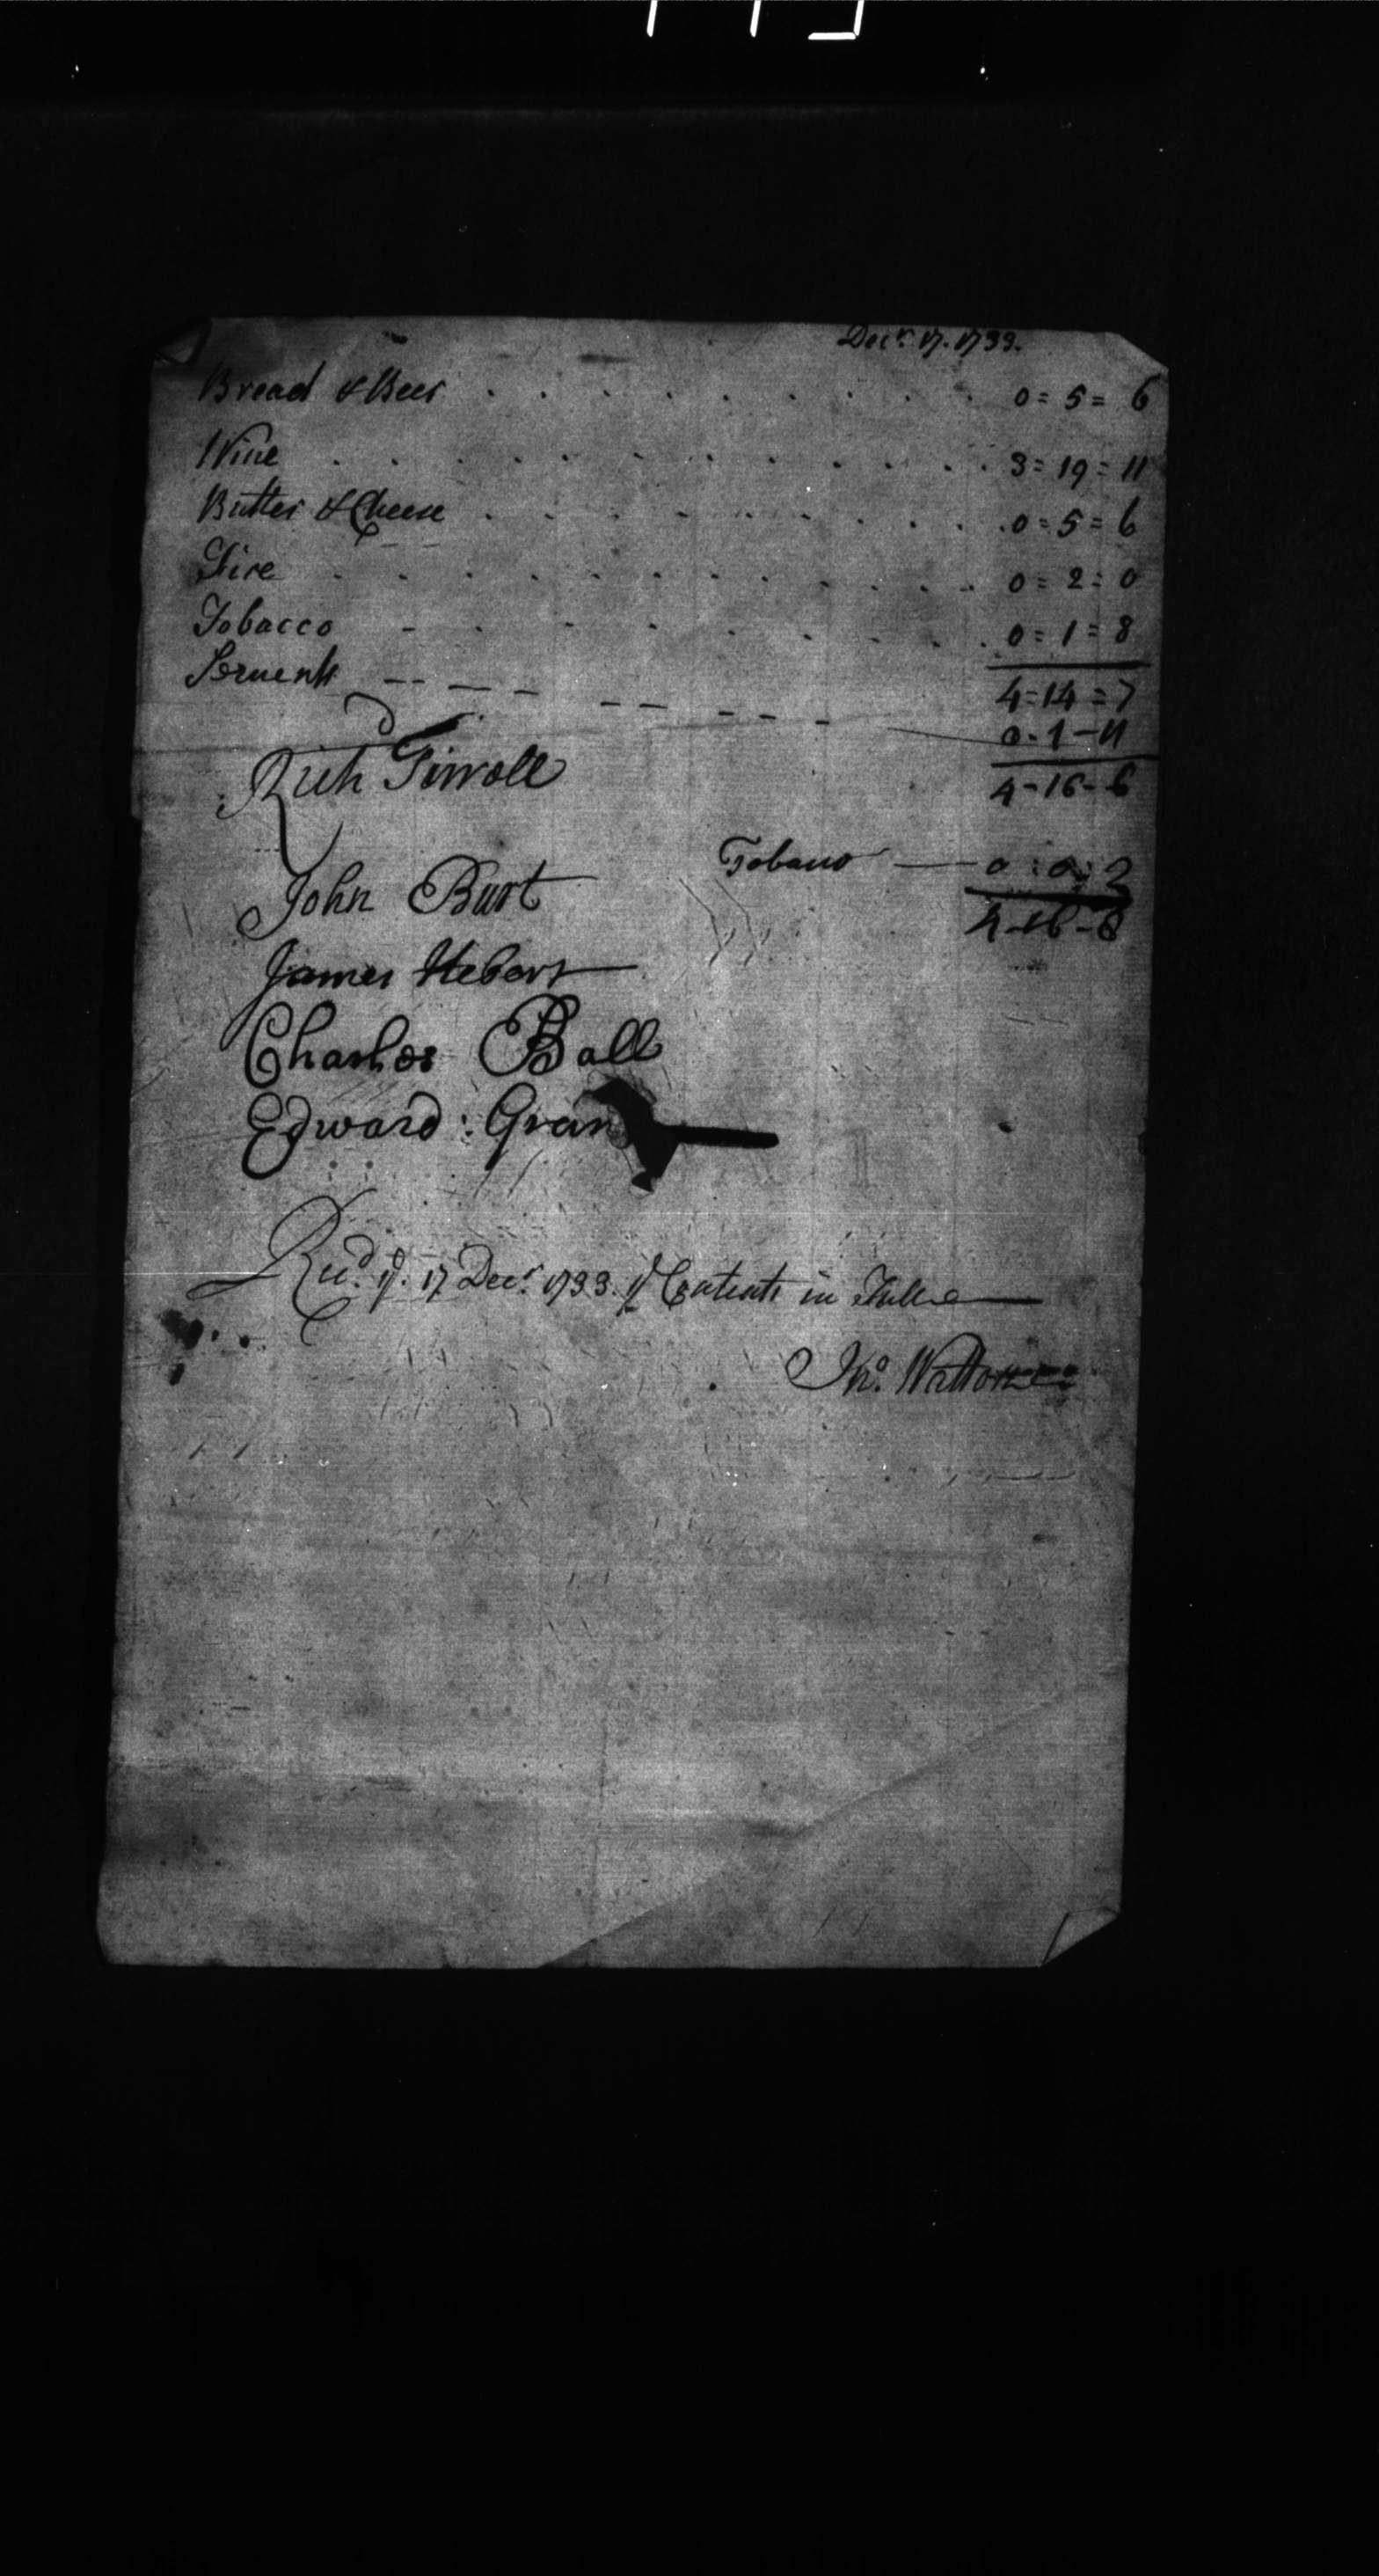 Decr. 17. 1733.
Bread & Beer . . . . . . . . . 0 = 5 = 6
Wine . . . . . . . . . . . . 3 = 19 = 11
Butter & Cheese . . . . . . . . . . 0 = 5 = 6
Fire . . . . . . . . . . . 0 = 2 = 0
Tobacco - . . . . . . . . . 0 = 1 = 8
Servents 4 = 14 = 7
0 - 1 - 11
4 - 16 - 6
Rich
Tobaco 0 : 0 : 2
John Burt
4 - 16 - 8
James Hebert
Charles Ball
Edward :
Recd. ye. 17 Decr. 1733. ye Contents in Full
Jno.